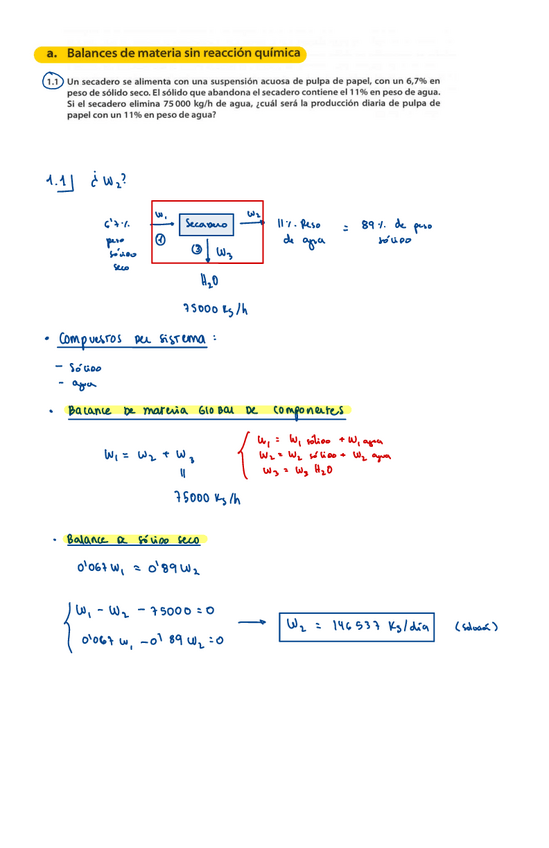 a. Balances de materia sin reacción química
1.1 Un secadero se alimenta con una suspensión acuosa de pulpa de papel, con un 6,7% en
peso de sólido seco. El sólido que abandona el secadero contiene el 11% en peso de agua.
Si el secadero elimina 75 000 kg/h de agua, ¿cuál será la producción diaria de pulpa de
papel con un 11% en peso de agua?
1.1] ¿W₂?
6'7% peso sólido seco
W₁
①
Secadero
W₂
③ W₃
H₂O
75000 Kg/h
11% Peso de agua = 89% de peso sólido
• Compuestos del sistema:
- Sólido
- agua
• Balance de materia Global de componentes
W₁ = W₂ + W₃
75000 Kg/h
W₁ = W₁ sólido + W₁ agua
W₂ = W₂ sólido + W₂ agua
W₃ = W₃ H₂O
• Balance de sólido seco
0'067 W₁ = 0'89 W₂
W₁ - W₂ - 75000 = 0
0'067 W₁ - 0'89 W₂ = 0
→ W₂ = 146537 Kg/día